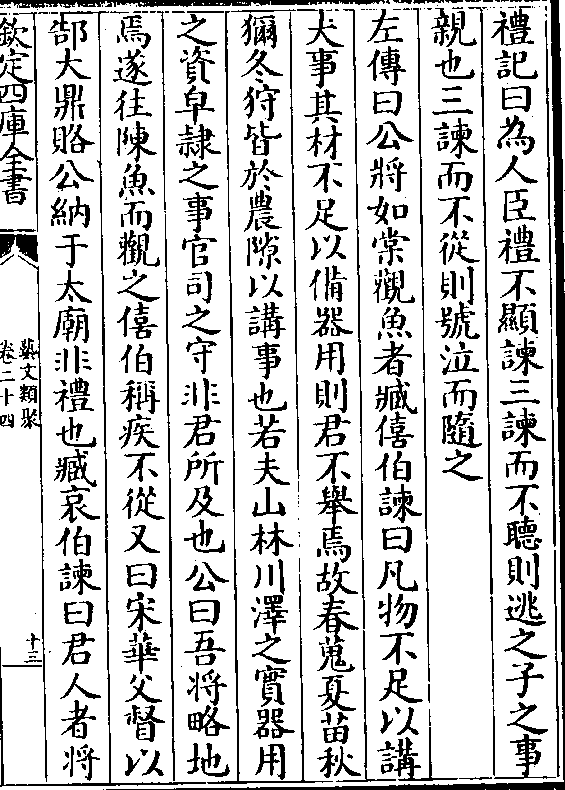 禮記曰為人臣禮不顯諫三諫而不聽則逃之子之事
親也三諫而不從則號泣而隨之
左傳曰公將如棠觀魚者臧僖伯諫曰凡物不足以講
大事其材不足以備器用則君不舉焉故春蒐夏苗秋
獮冬狩皆於農隙以講事也若夫山林川澤之實器用
之資皁隷之事官司之守非君所及也公曰吾將略地
焉遂往陳魚而觀之僖伯稱疾不從又曰宋華父督以
郜大鼎賂公納于太廟非禮也臧哀伯諫曰君人者將
欽定四庫全書
藝文類聚
卷二十四
十三